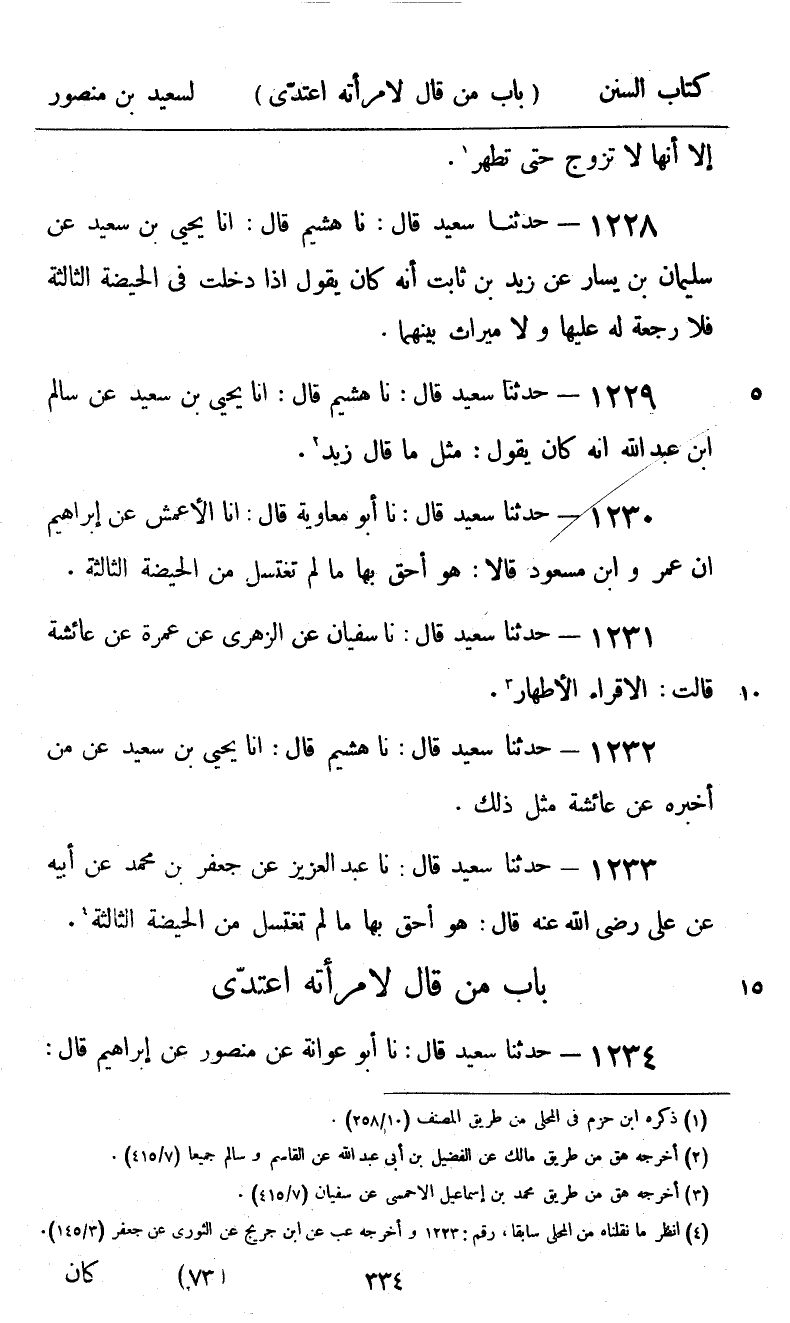 كتاب السنن ( باب من قال لامرأته اعتدّى ) لسعيد بن منصور
إلا أنها لا تزوج حتى تطهر١ .
١٢٢٨ – حدثنا سعيد قال : نا هشيم قال : انا يحيى بن سعيد عن
سليمان بن يسار عن زيد بن ثابت أنه كان يقول اذا دخلت فى الحيضة الثالثة
فلا رجعة له عليها و لا ميراث بينهما .
١٢٢٩ – حدثنا سعيد قال : نا هشيم قال : انا يحيى بن سعيد عن سالم ٥
ابن عبد الله انه كان يقول : مثل ما قال زيد٢ .
١٢٣٠ – حدثنا سعيد قال : نا أبو معاوية قال : انا الأعمش عن إبراهيم
ان عمر و ابن مسعود قالا : هو أحق بها ما لم تغتسل من الحيضة الثالثة .
١٢٣١ – حدثنا سعيد قال : نا سفيان عن الزهرى عن عمرة عن عائشة
قالت : الاقراء الأطهار٣ . ١٠
١٢٣٢ – حدثنا سعيد قال : نا هشيم قال : انا يحيى بن سعيد عن من
أخبره عن عائشة مثل ذلك .
١٢٣٣ – حدثنا سعيد قال : نا عبد العزيز عن جعفر بن محمد عن أبيه
عن على رضى الله عنه قال : هو أحق بها ما لم تغتسل من الحيضة الثالثة٤ .
باب من قال لامرأته اعتدّى ١٥
١٢٣٤ – حدثنا سعيد قال : نا أبو عوانة عن منصور عن إبراهيم قال :
(١) ذكره ابن حزم فى المحلى من طريق المصنف (٢٥٨/١٠) .
(٢) أخرجه هق من طريق مالك عن الفضيل بن أبى عبد الله عن القاسم و سالم جميعا (٤١٥/٧) .
(٣) أخرجه هق من طريق محمد بن إسماعيل الاحمسى عن سفيان (٤١٥/٧) .
(٤) انظر ما نقلناه من المحلى سابقا ، رقم : ١٢٣٣ و أخرجه عب عن ابن جريج عن الثورى عن جعفر (١٤٥/٣).
٣٣٤ (٧٣) كان